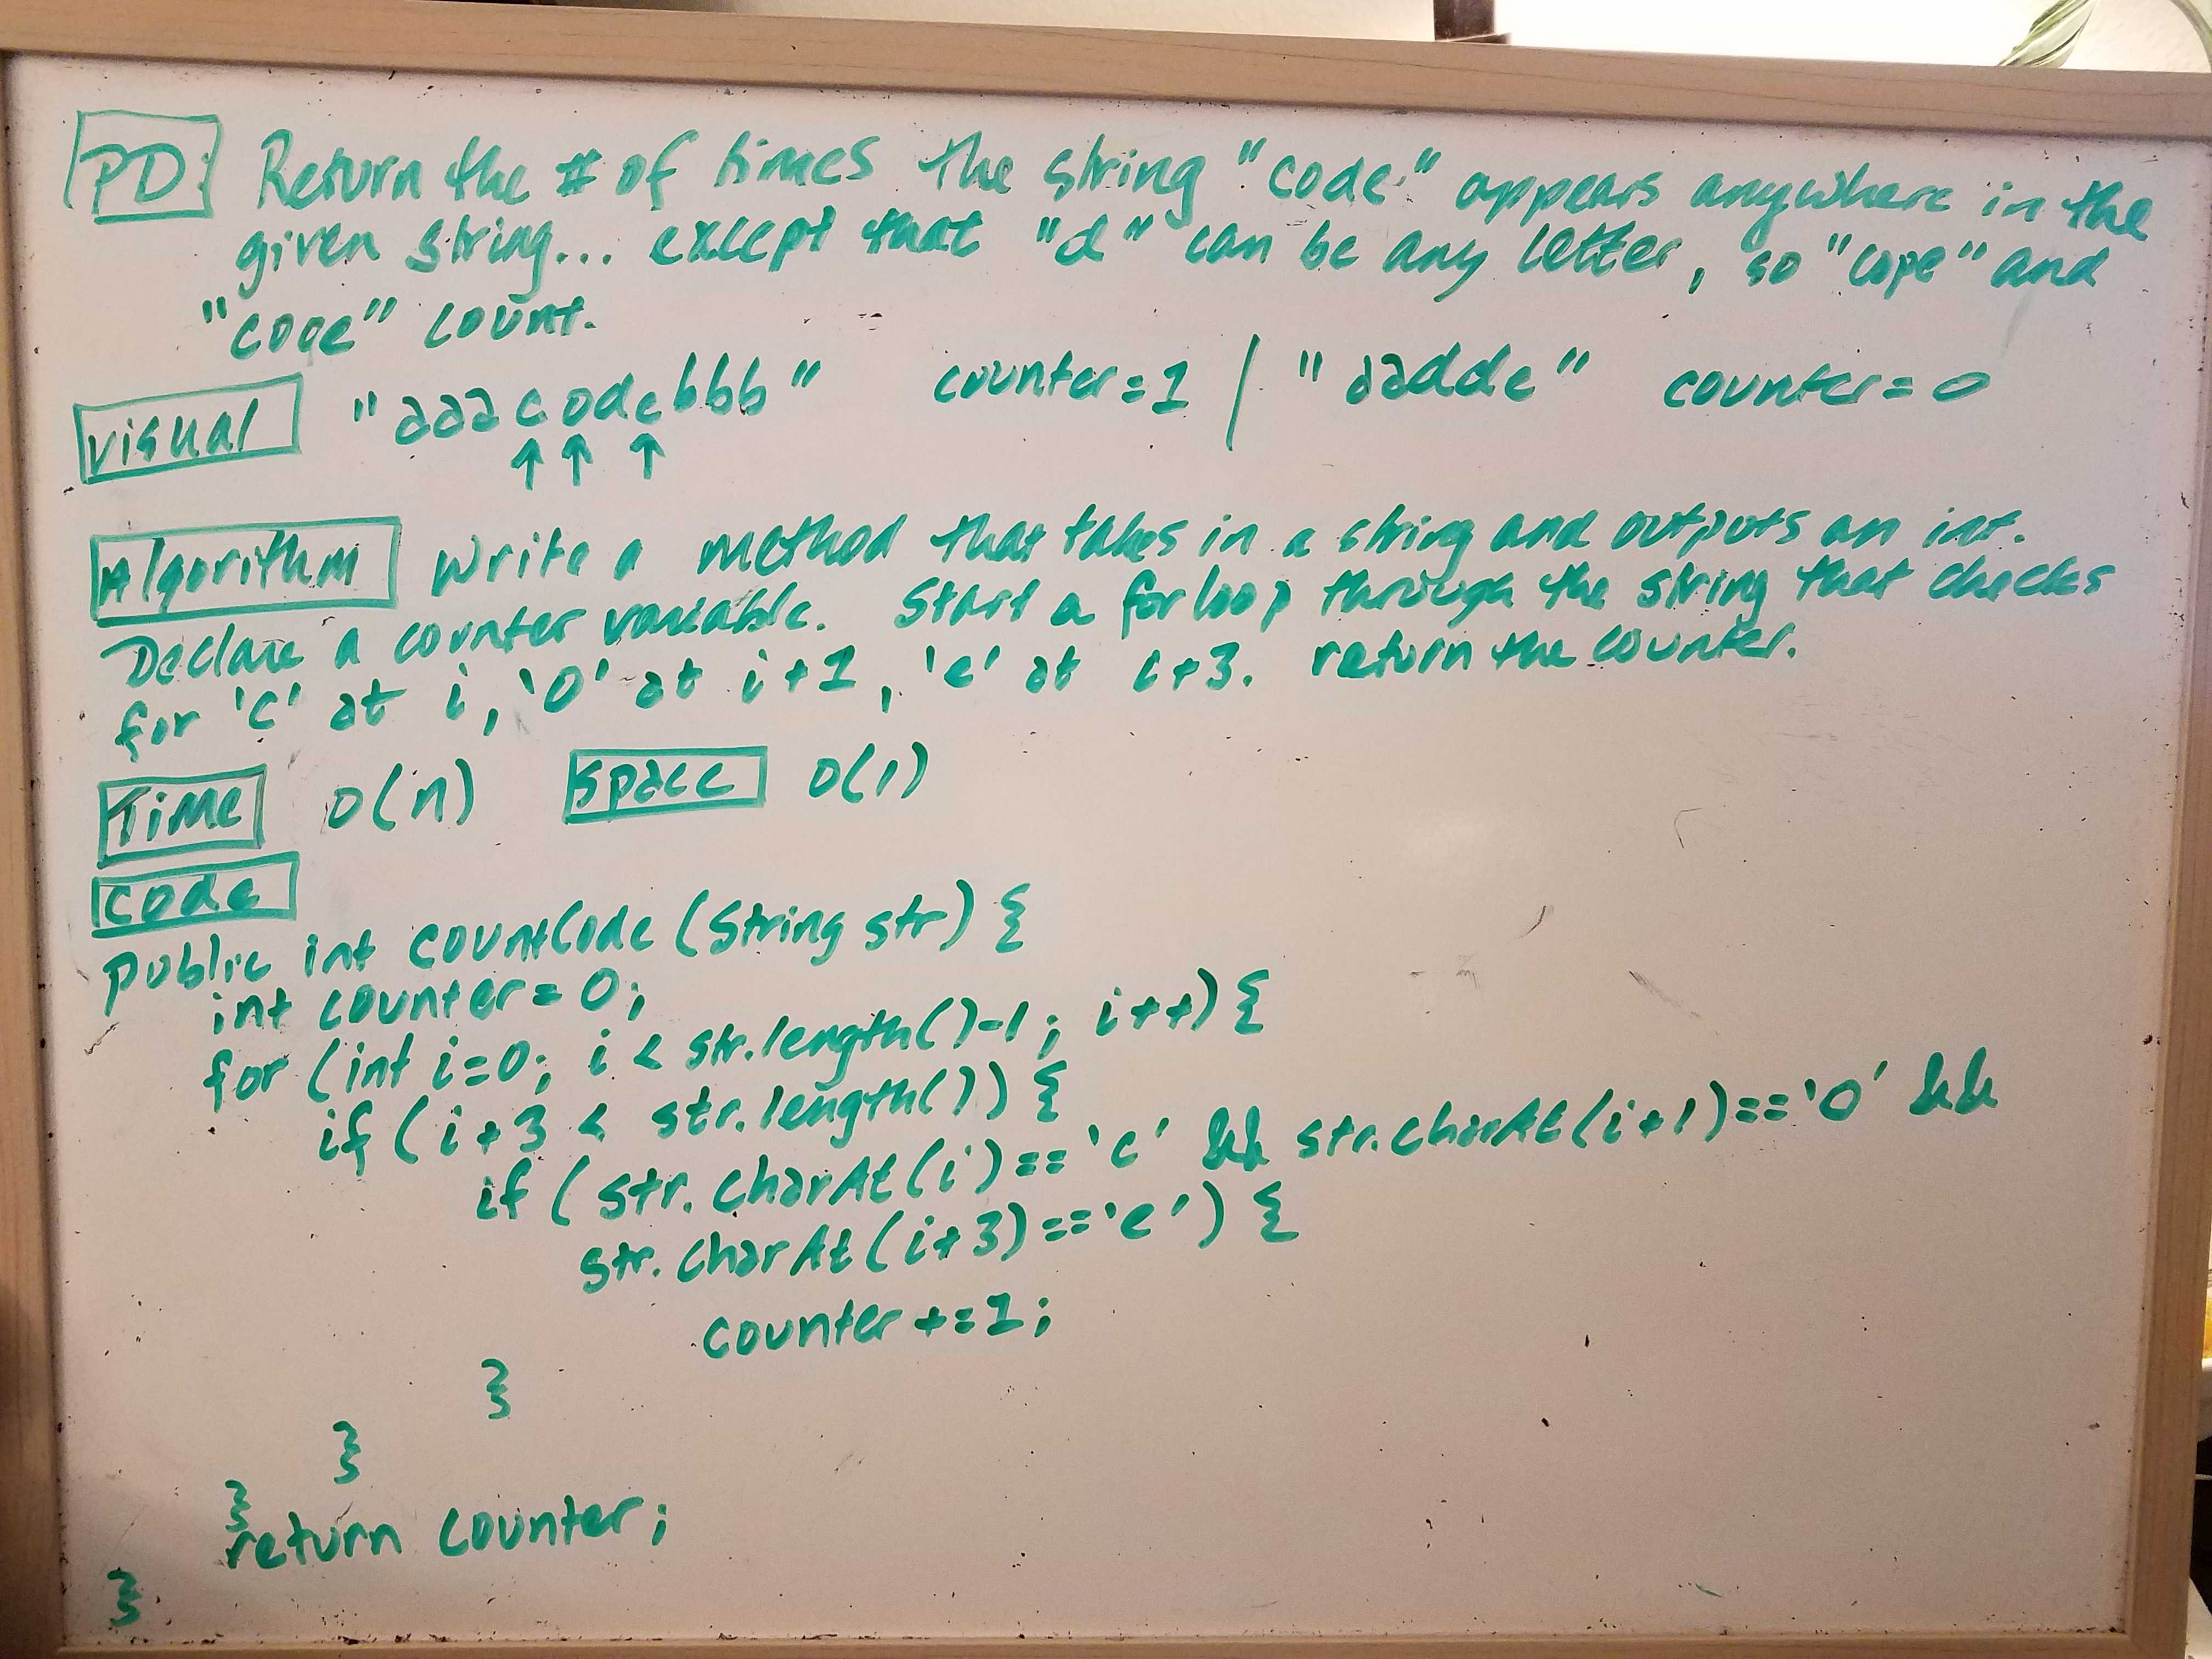 PD: Return the # of times the string "code" appears anywhere in the
given string... except that "d" can be any letter, so "cope" and
"cooe" count.
visual "aaacodebbb" counter=1 / "aadde" counter=0
↑ ↑ ↑
Algorithm Write a method that takes in a string and outputs an int.
Declare a counter variable. Start a for loop through the string that checks
for 'c' at i, 'o' at i+1, 'e' at i+3. return the counter.
Time O(n) Space O(1)
code
public int countCode (String str) {
int counter = 0;
for (int i=0; i < str.length()-1; i++) {
if (i+3 < str.length()) {
if (str.charAt(i)=='c' && str.charAt(i+1)=='o' &&
str.charAt(i+3)=='e') {
counter +=1;
}
}
}
return counter;
}